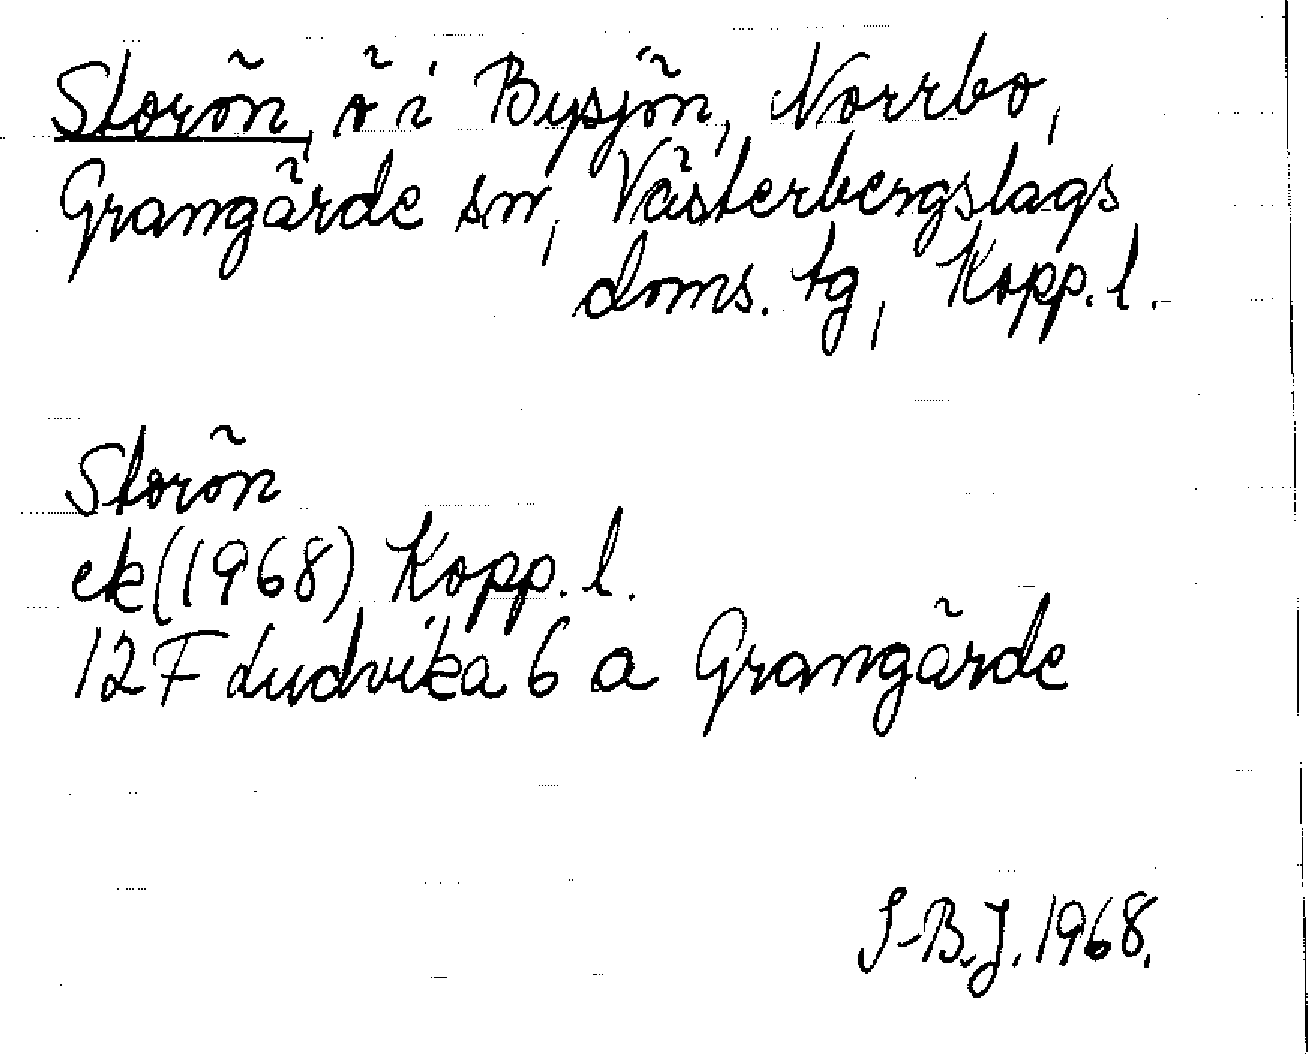 Storön, ö i Bysjön, Norrbo,
Grangärde sn, Västerbergslags
doms. tg, Kopp. l.
Storön
ek (1968) Kopp. l.
12 F Ludvika 6 a Grangärde
S-B.J. 1968.